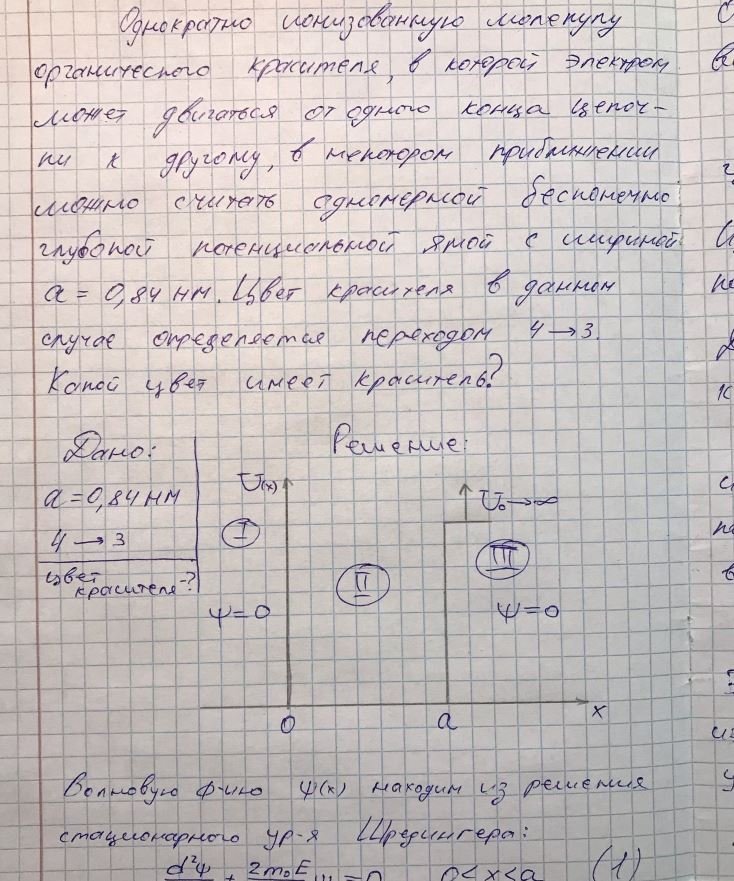 Однократно ионизованную молекулу
органического красителя, в которой электрон
может двигаться от одного конца цепоч-
ки к другому, в некотором приближении
можно считать одномерной бесконечно
глубокой потенциальной ямой с шириной
a = 0,84 нм. Цвет красителя в данном
случае определяется переходом 4 → 3.
Какой цвет имеет краситель?
Дано:
Решение:
a = 0,84 нм
4 → 3
цвет
красителя-?
U(x)
U₀→∞
I
II
III
ψ=0
ψ=0
0
a
x
Волновую ф-ию ψ(x) находим из решения
стационарного ур-я Шредингера:
d²ψ + 2m₀E ψ = 0 0<x<a (1)